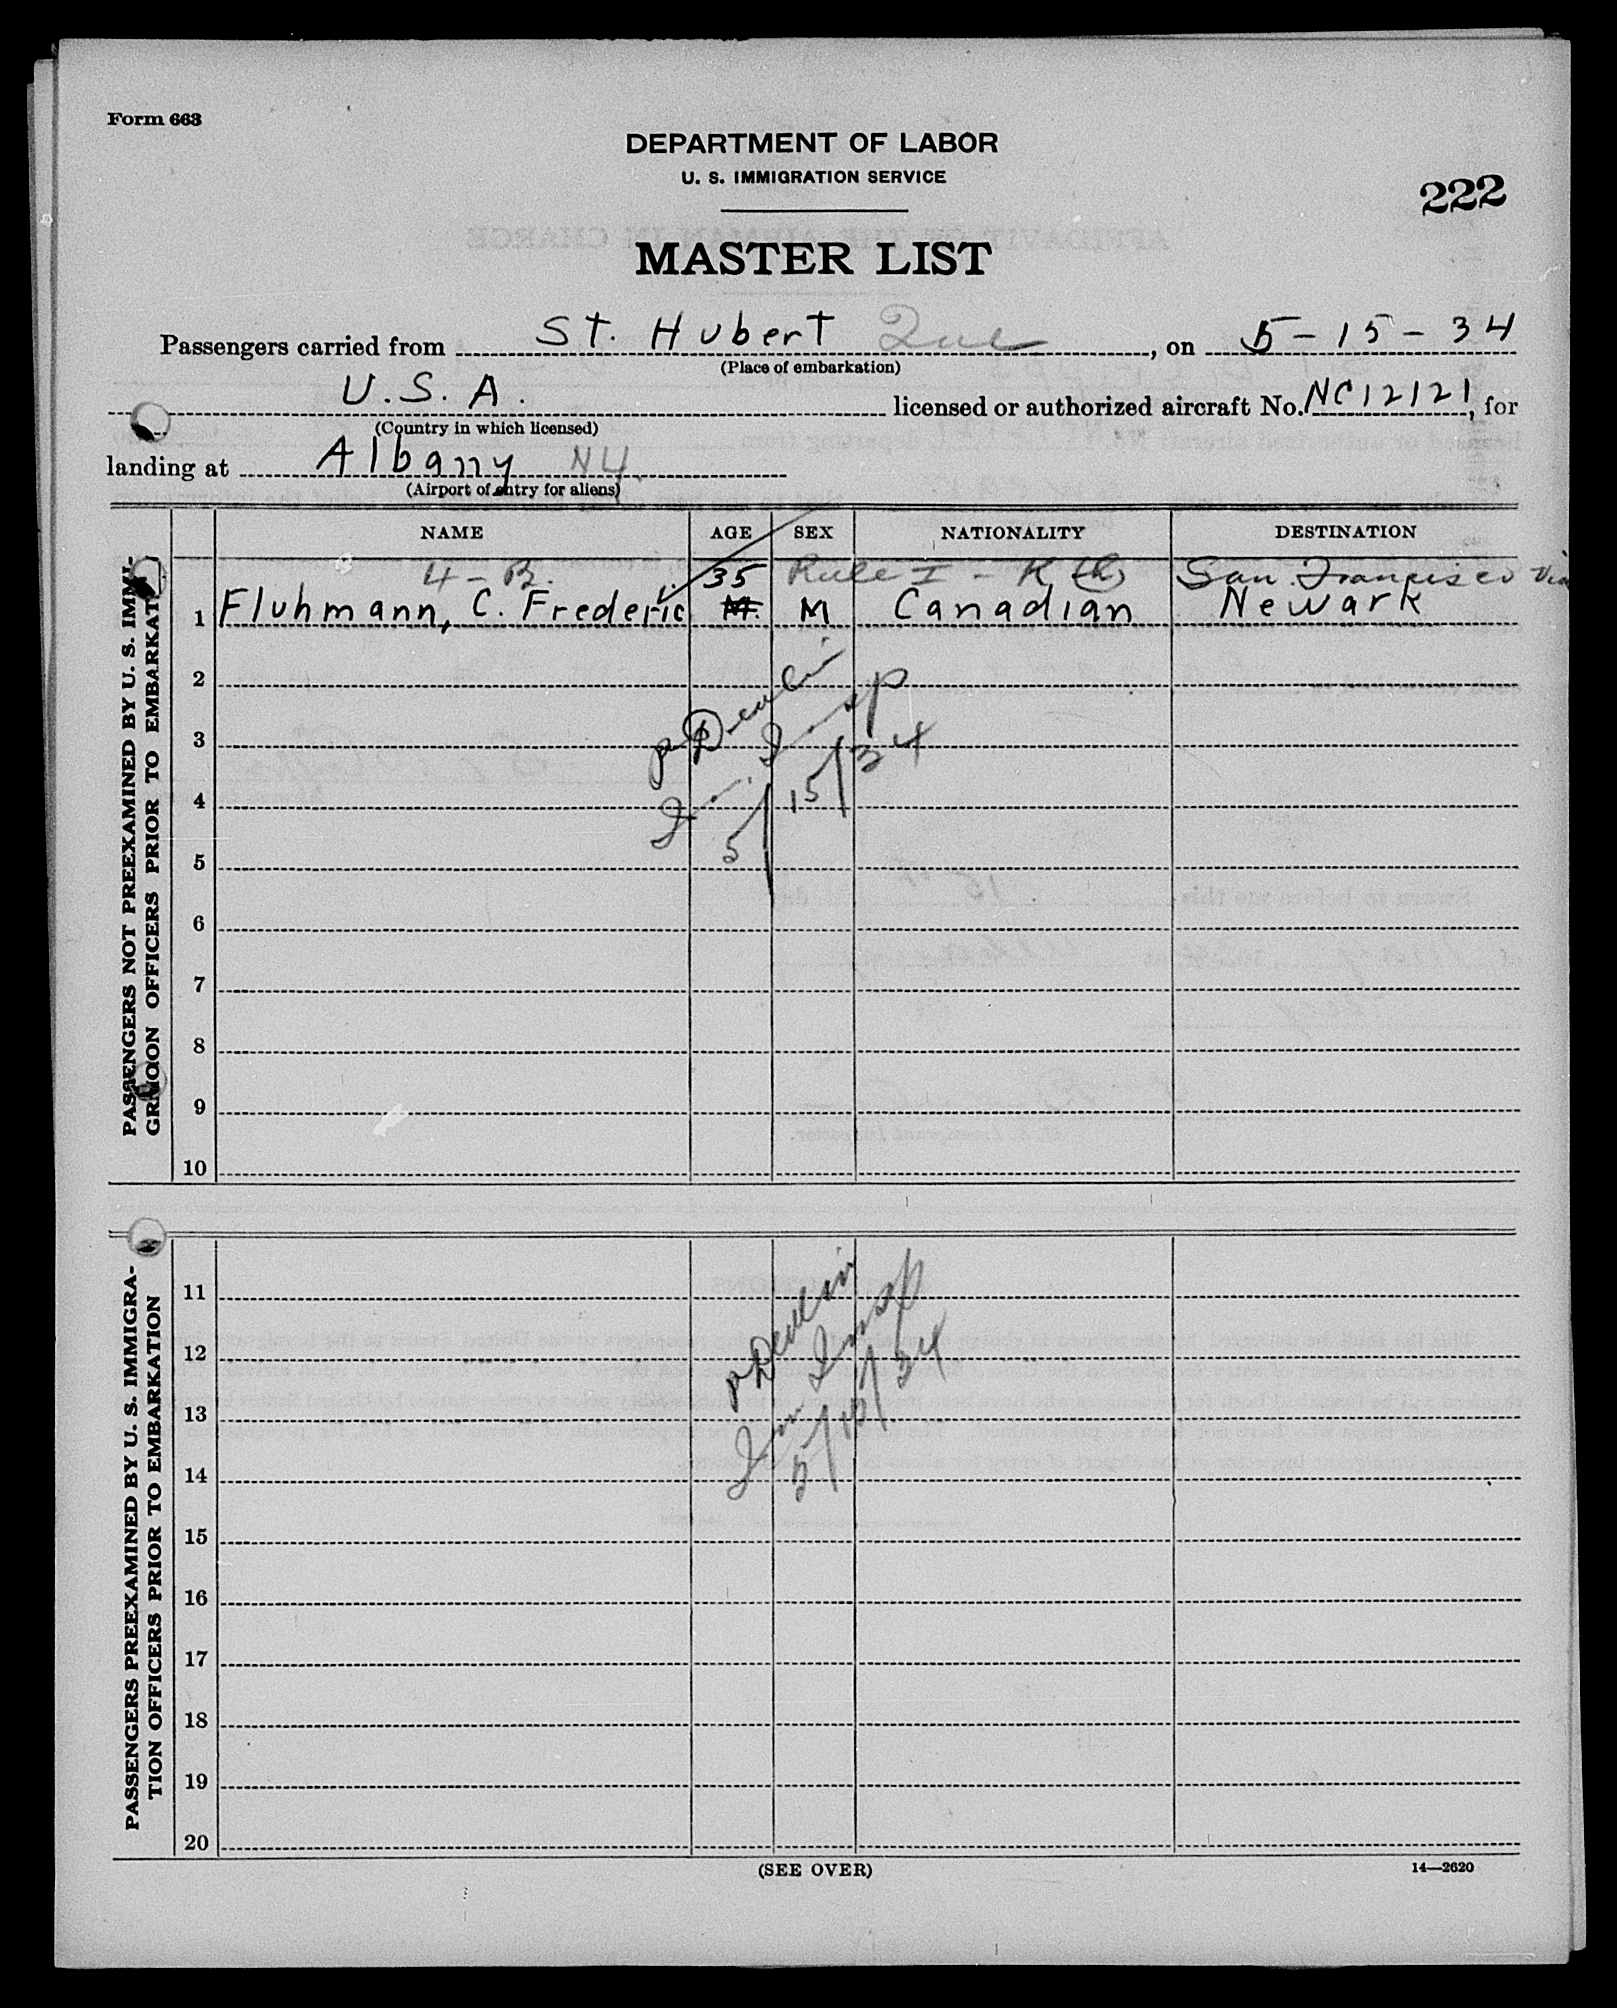 Form 663
DEPARTMENT OF LABOR
U. S. IMMIGRATION SERVICE
222
MASTER LIST
Passengers carried from St. Hubert Que , on 5-15-34
(Place of embarkation)
U.S.A. licensed or authorized aircraft No. NC12121, for
(Country in which licensed)
landing at Albany NY
(Airport of entry for aliens)
NAME AGE SEX NATIONALITY DESTINATION
4-B. 35 Rule I - K San Francisco via
1 Fluhmann, C. Frederic M. M Canadian Newark
2
3
4
5
6
7
8
9
10
PASSENGERS NOT PREEXAMINED BY U. S. IMMI-
GRATION OFFICERS PRIOR TO EMBARKATION
P Devlin
Imm. Insp
5/15/34
11
12
13
14
15
16
17
18
19
20
PASSENGERS PREEXAMINED BY U. S. IMMIGRA-
TION OFFICERS PRIOR TO EMBARKATION
P Devlin
Imm Insp
5/15/34
(SEE OVER)
14—2620